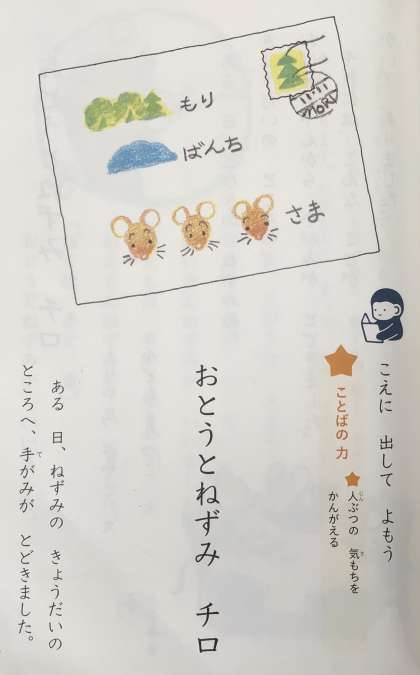 もり
ばんち
さま
MORI
こえに 出して よもう
ことばの 力
人ぶつの 気もちを
かんがえる
おとうとねずみ チロ
ある 日、ねずみの きょうだいの
ところへ、手がみが とどきました。